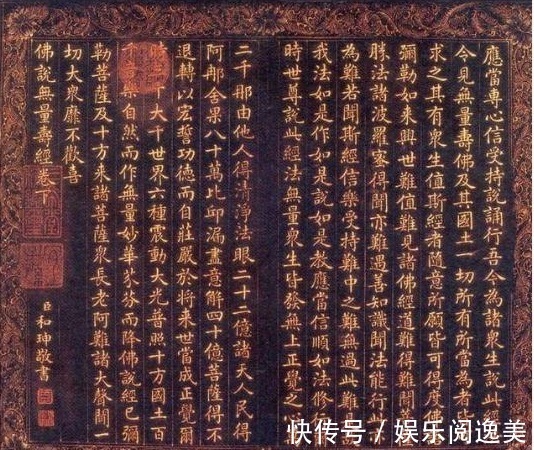 應當專心信受持說誦行吾今為諸眾生說此經
今見無量壽佛及其國土一切所有所當為者皆
求之其有眾生值斯經者隨意所願皆可得度佛
彌勒如來興世難值難見諸佛經道難得難聞
勝法諸波羅蜜得聞亦難遇善知識聞法能行此
為難若聞斯經信樂受持難中之難無過此難
我法如是作如是說如是教應當信順如法修行
時世尊說此經法無量眾生皆發無上正覺之心
二千那由他人得清淨法眼二十二億諸天人民得
阿那舍果八十萬比邱漏盡意解四十億菩薩得不
退轉以宏誓功德而自莊嚴於將來世當成正覺爾
時 千大千世界六種震動大光普照十方國土百
千 樂自然而作無量妙華芬芬而降佛說經已彌
勒菩薩及十方來諸菩薩眾長老阿難諸大聲聞一
切大眾靡不歡喜
佛說無量壽經卷下
臣和珅敬書
快传号/娱乐阅逸美